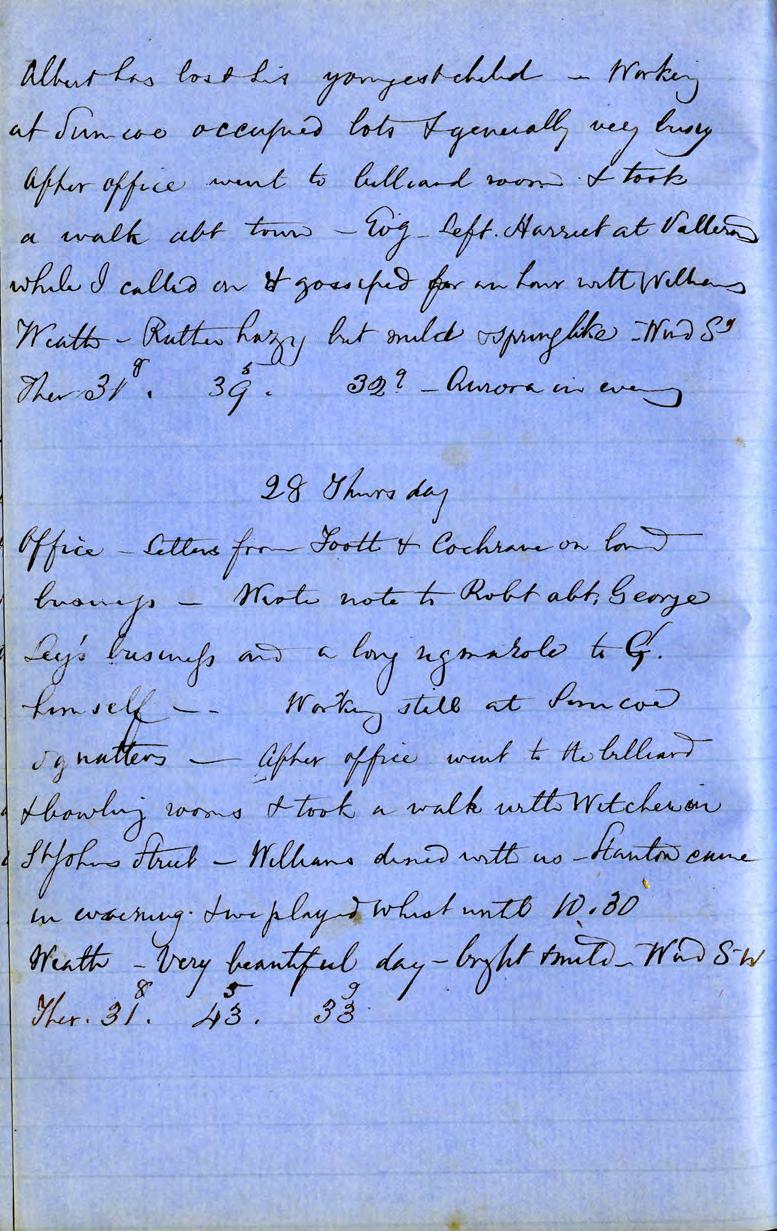 Albert has lost his youngest child – Working
at Simcoe occupied lots & generally very busy
After office went to billiard room & took
a walk abt town – Evg – Left Harriet at Vallerand
while I called on & gossiped for an hour with Williams
Weath – Rather hazy but mild & springlike – Wind S
Ther 31 8. 39 5. 32 9 – Aurora in eveng
28 Thursday
Office – Letters from Foott & Cochrane on land
business – Wrote note to Robt abt George
Ley's business and a long rigmarole to G.
himself – – Working still at Simcoe
sq matters – After office went to the billiard
& bowling rooms & took a walk with Witcher in
St Johns Street – Williams dined with us – Stanton came
in evening & we played Whist until 10.30
Weath – Very beautiful day – bright & mild – Wind S–W
Ther. 31 8. 43 5. 33 9